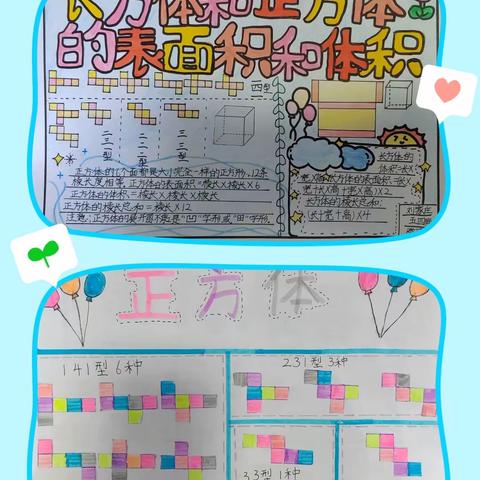 长方体和正方体
的表面积和体积
一四一型
二三一型
二二二型
三三型
正方体的6个面都是大小完全一样的正方形,12条
棱长度相等,正方体的表面积=棱长×棱长×6
正方体的体积=棱长×棱长×棱长
正方体的棱长之和=棱长×12
注意:正方体的展开图不能是“凹”字形或“田”字形
长方体的
体积=长×
宽×高
(长×宽+长×高+宽×高)×2
长方体的棱长之和:
(长+宽+高)×4
正方体
141型6种
231型3种
33型1种